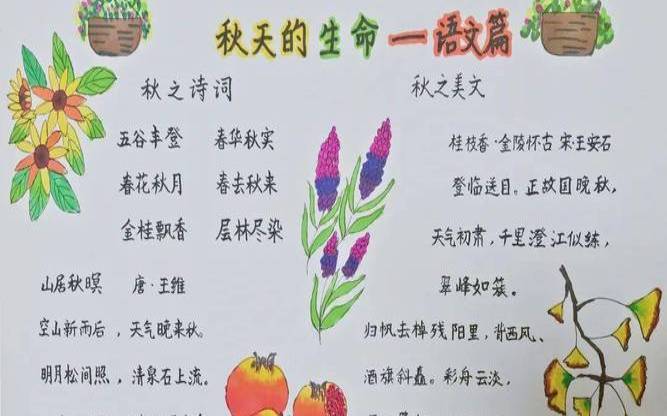 秋天的生命—语文篇
秋之诗词
五谷丰登 春华秋实
春花秋月 春去秋来
金桂飘香 层林尽染
山居秋暝 唐·王维
空山新雨后，天气晚来秋。
明月松间照，清泉石上流。
秋之美文
桂枝香·金陵怀古 宋·王安石
登临送目。正故国晚秋，
天气初肃，千里澄江似练，
翠峰如簇。
归帆去棹残阳里，背西风、
酒旗斜矗。彩舟云淡，